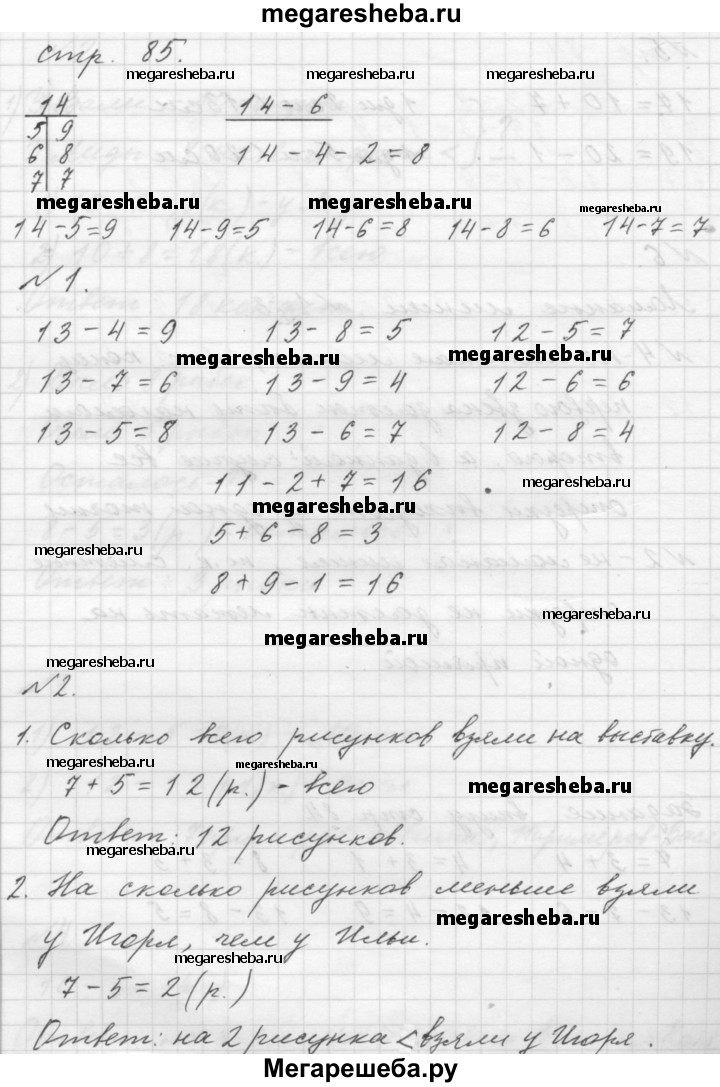 megaresheba.ru
стр. 85.
megaresheba.ru megaresheba.ru megaresheba.ru
14 14 - 6
5 9 14 - 4 - 2 = 8
6 8
7 7
megaresheba.ru megaresheba.ru megaresheba.ru
14-5=9 14-9=5 14-6=8 14-8=6 14-7=7
№1.
13 - 4 = 9 13 - 8 = 5 12 - 5 = 7
megaresheba.ru megaresheba.ru
13 - 7 = 6 13 - 9 = 4 12 - 6 = 6
13 - 5 = 8 13 - 6 = 7 12 - 8 = 4
11 - 2 + 7 = 16 megaresheba.ru
megaresheba.ru
5 + 6 - 8 = 3
megaresheba.ru
8 + 9 - 1 = 16
megaresheba.ru megaresheba.ru
megaresheba.ru
№2.
1. Сколько всего рисунков взяли на выставку.
megaresheba.ru megaresheba.ru
7 + 5 = 12 (р.) - всего megaresheba.ru
Ответ: 12 рисунков.
megaresheba.ru megaresheba.ru
2. На сколько рисунков меньше взяли
megaresheba.ru
у Игоря, чем у Ильи.
megaresheba.ru megaresheba.ru
7 - 5 = 2 (р.)
megaresheba.ru
Ответ: на 2 рисунка < взяли у Игоря.
Мегарешеба.ру